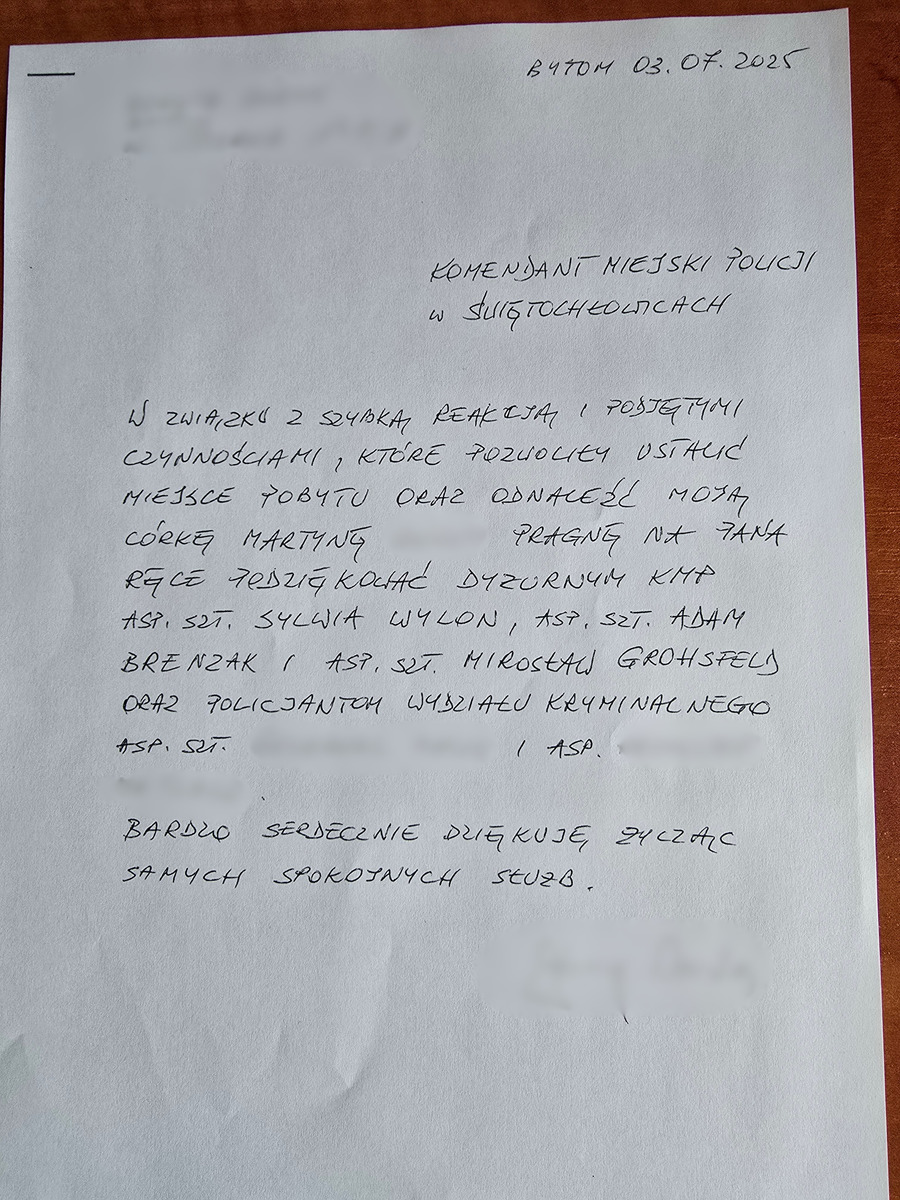 BYTOM 03.07.2025
KOMENDANT MIEJSKI POLICJI
W ŚWIĘTOCHŁOWICACH
W ZWIĄZKU Z SZYBKĄ REAKCJĄ I PODJĘTYMI
CZYNNOŚCIAMI, KTÓRE POZWOLIŁY USTALIĆ
MIEJSCE POBYTU ORAZ ODNALEŹĆ MOJĄ
CÓRKĘ MARTYNĘ PRAGNĘ NA PANA
RĘCE PODZIĘKOWAĆ DYŻURNYM KMP
ASP. SZT. SYLWIA WYLON, ASP. SZT. ADAM
BRENZAK I ASP. SZT. MIROSŁAW GROHSFELD
ORAZ POLICJANTOM WYDZIAŁU KRYMINALNEGO
ASP. SZT. I ASP.
BARDZO SERDECZNIE DZIĘKUJĘ ŻYCZĄC
SAMYCH SPOKOJNYCH SŁUŻB.